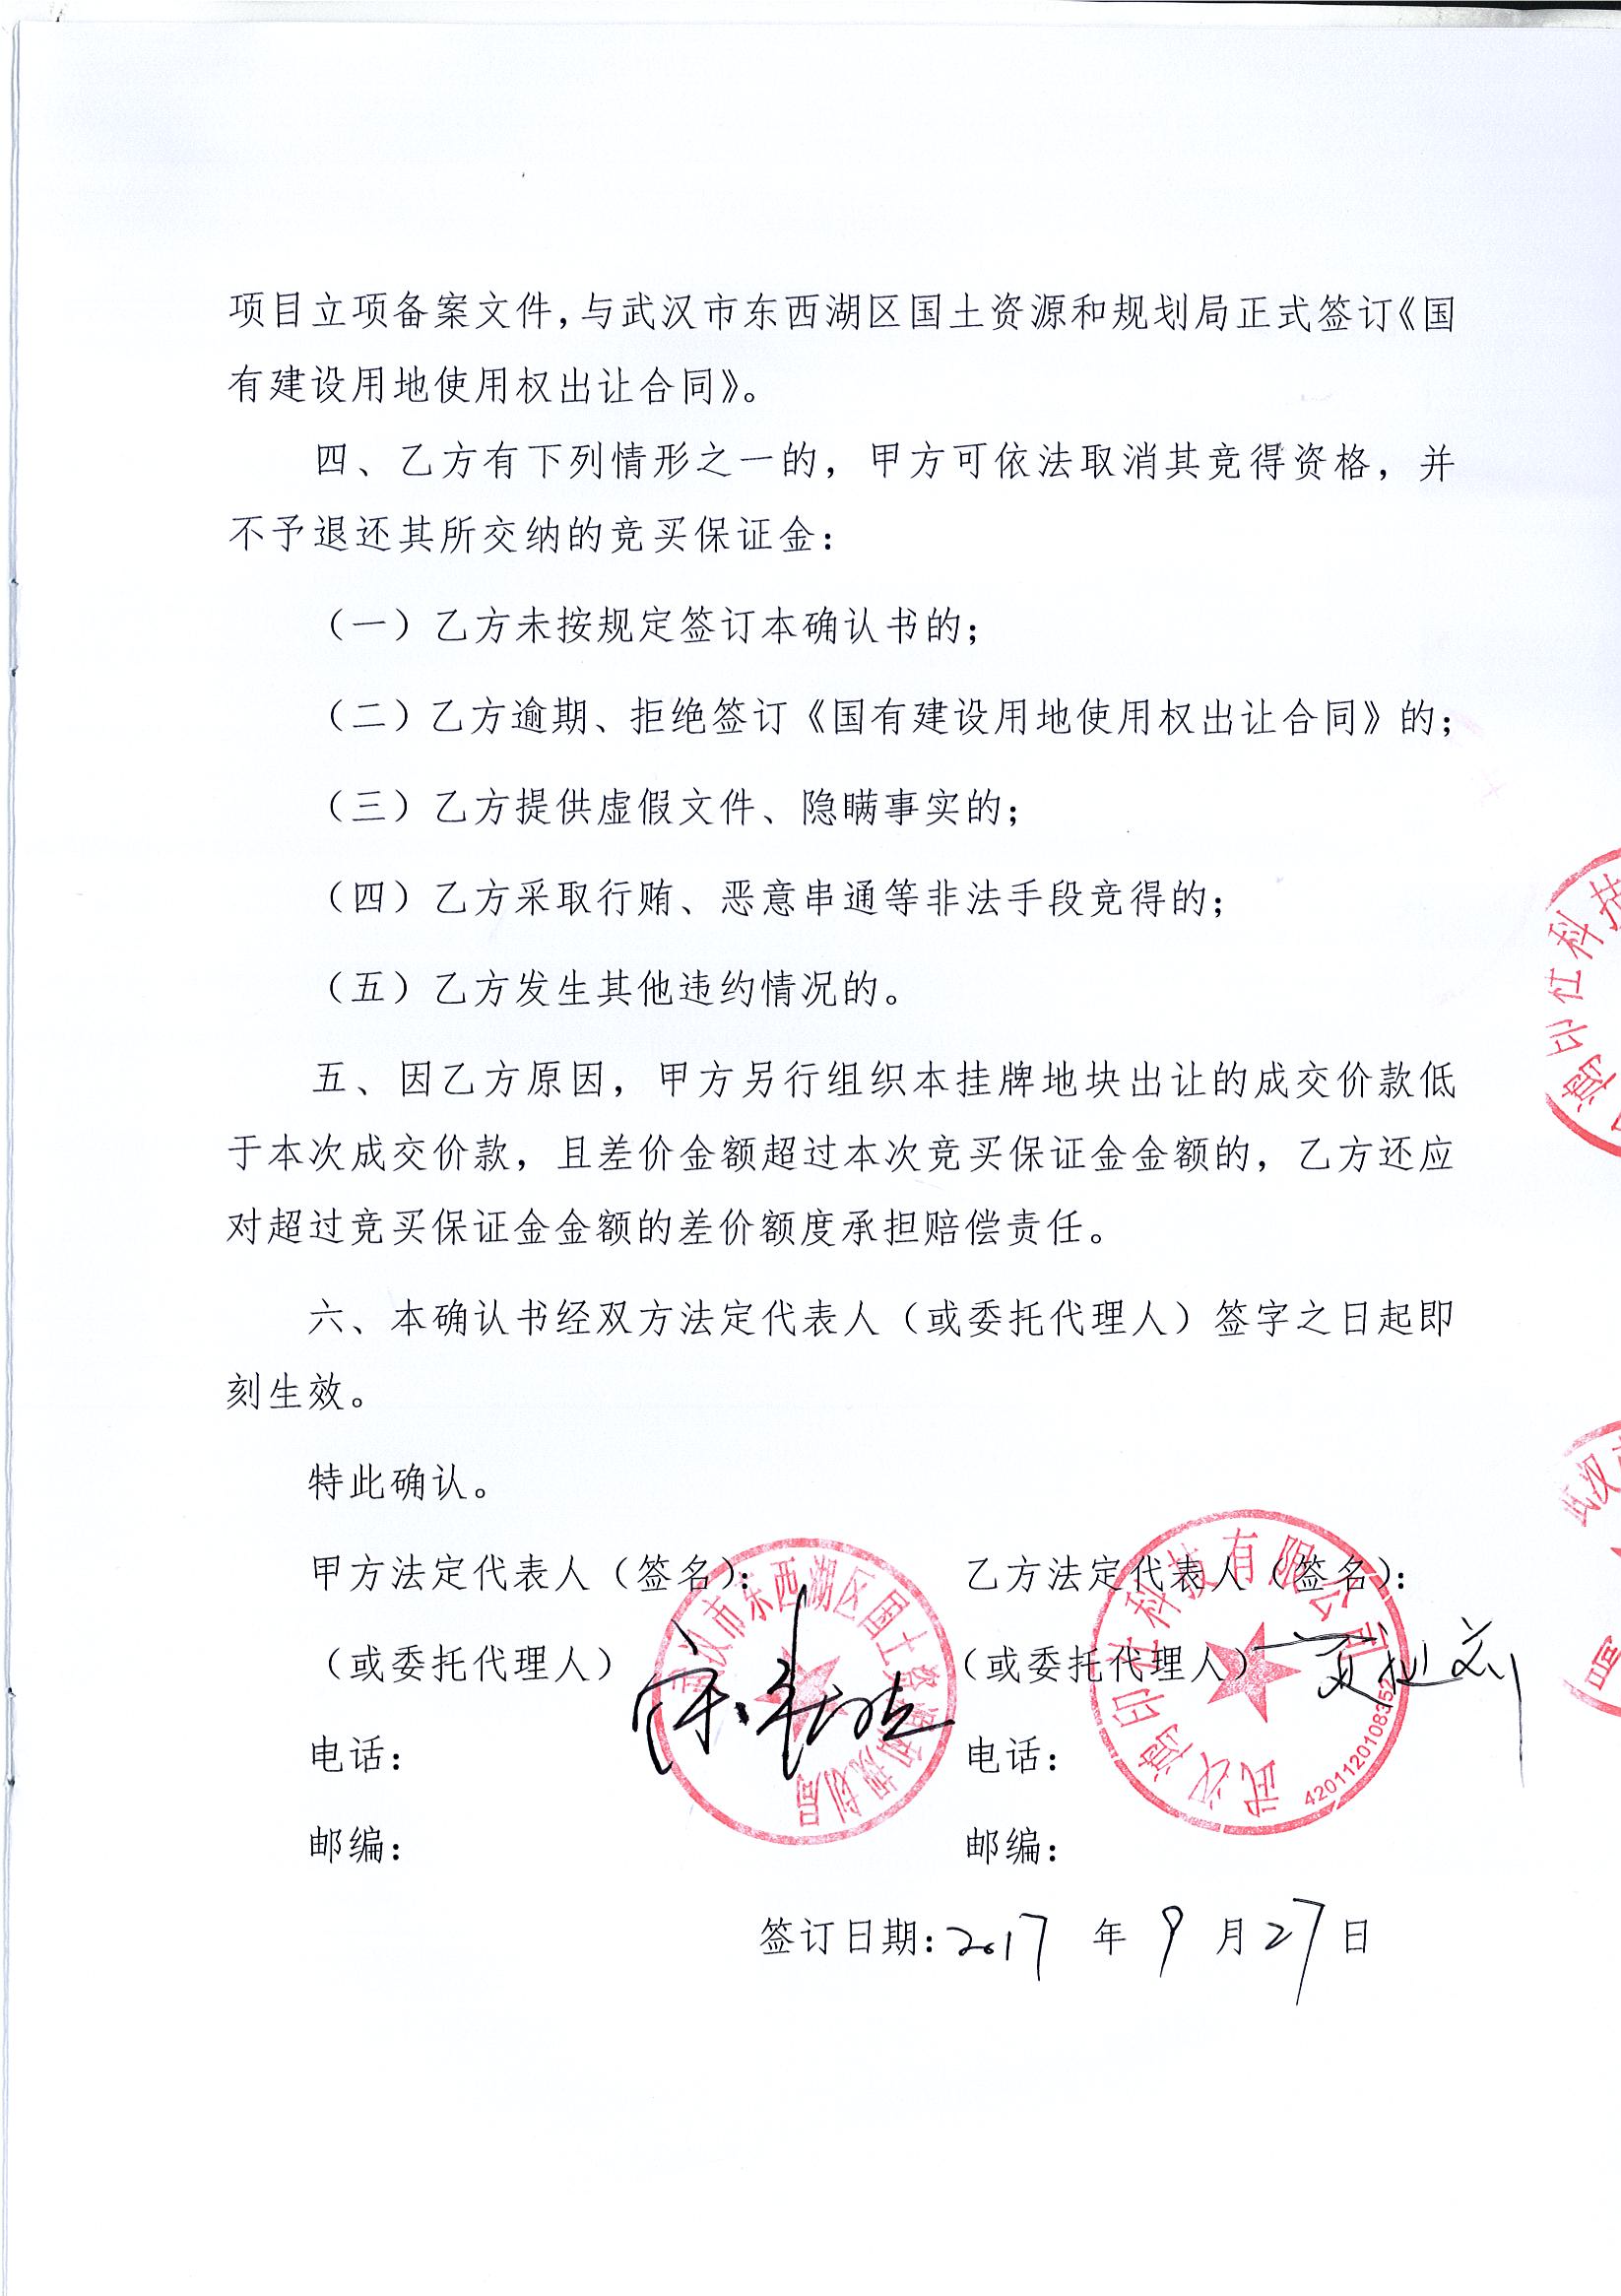 项目立项备案文件，与武汉市东西湖区国土资源和规划局正式签订《国
有建设用地使用权出让合同》。
四、乙方有下列情形之一的，甲方可依法取消其竞得资格，并
不予退还其所交纳的竞买保证金：
（一）乙方未按规定签订本确认书的；
（二）乙方逾期、拒绝签订《国有建设用地使用权出让合同》的；
（三）乙方提供虚假文件、隐瞒事实的；
（四）乙方采取行贿、恶意串通等非法手段竞得的；
（五）乙方发生其他违约情况的。
五、因乙方原因，甲方另行组织本挂牌地块出让的成交价款低
于本次成交价款，且差价金额超过本次竞买保证金金额的，乙方还应
对超过竞买保证金金额的差价额度承担赔偿责任。
六、本确认书经双方法定代表人（或委托代理人）签字之日起即
刻生效。
特此确认。
甲方法定代表人（签名）： 乙方法定代表人（签名）：
（或委托代理人） （或委托代理人）
电话： 电话：
邮编： 邮编：
签订日期：2017 年 9 月 27 日
武汉市东西湖区国土资源和规划局
科技有限公司
4201120108352